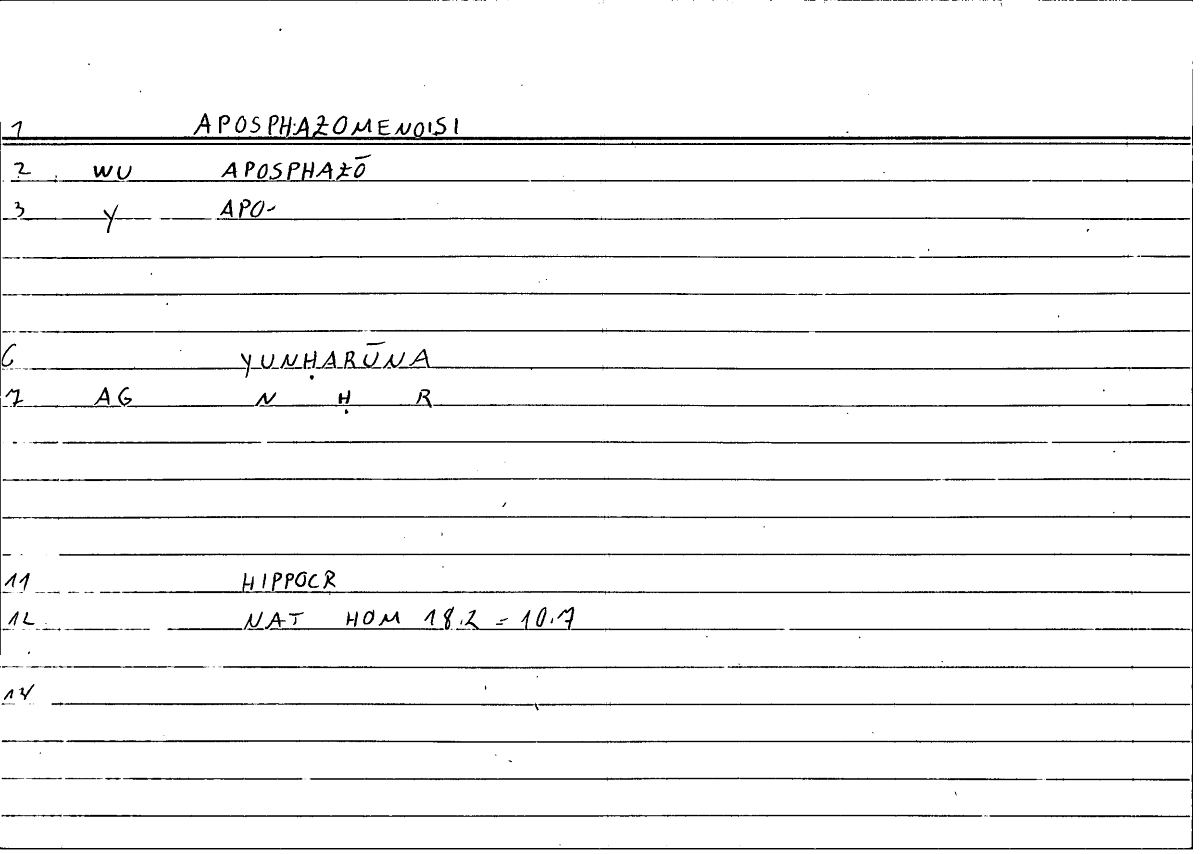 1 APOSPHAZOMENOISI
2 WU APOSPHAZŌ
3 Y APO-
6 YUNḤARŪNA
7 AG N Ḥ R
11 HIPPOCR
12 NAT HOM 18.2 = 10.7
14